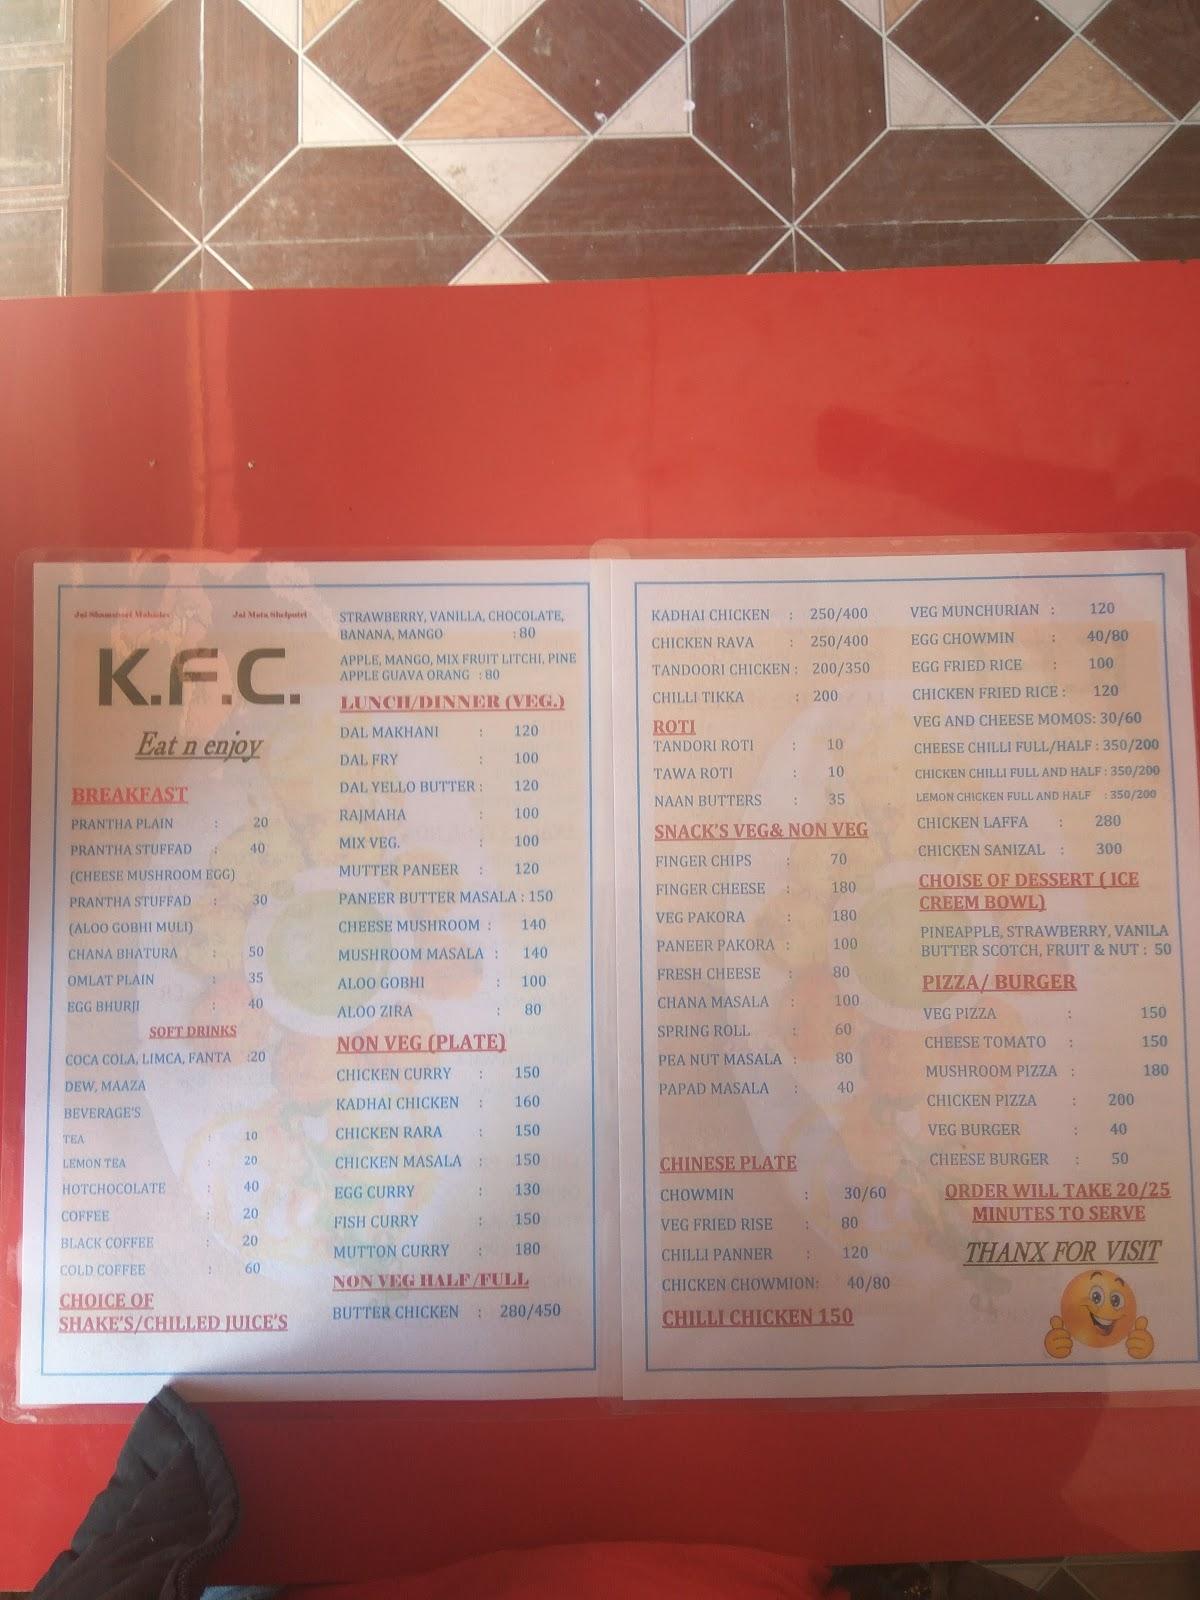 Jai Shamshari Mahadev
Jai Mata Shelputri
K.F.C.
Eat n enjoy
BREAKFAST
PRANTHA PLAIN : 20
PRANTHA STUFFAD : 40
(CHEESE MUSHROOM EGG)
PRANTHA STUFFAD : 30
(ALOO GOBHI MULI)
CHANA BHATURA : 50
OMLAT PLAIN : 35
EGG BHURJI : 40
SOFT DRINKS
COCA COLA, LIMCA, FANTA :20
DEW, MAAZA
BEVERAGE'S
TEA : 10
LEMON TEA : 20
HOTCHOCOLATE : 40
COFFEE : 20
BLACK COFFEE : 20
COLD COFFEE : 60
CHOICE OF
SHAKE'S/CHILLED JUICE'S
STRAWBERRY, VANILLA, CHOCOLATE,
BANANA, MANGO :80
APPLE, MANGO, MIX FRUIT LITCHI, PINE
APPLE GUAVA ORANG :80
LUNCH/DINNER (VEG.)
DAL MAKHANI : 120
DAL FRY : 100
DAL YELLO BUTTER : 120
RAJMAHA : 100
MIX VEG. : 100
MUTTER PANEER : 120
PANEER BUTTER MASALA : 150
CHEESE MUSHROOM : 140
MUSHROOM MASALA : 140
ALOO GOBHI : 100
ALOO ZIRA : 80
NON VEG (PLATE)
CHICKEN CURRY : 150
KADHAI CHICKEN : 160
CHICKEN RARA : 150
CHICKEN MASALA : 150
EGG CURRY : 130
FISH CURRY : 150
MUTTON CURRY : 180
NON VEG HALF /FULL
BUTTER CHICKEN : 280/450
KADHAI CHICKEN : 250/400
CHICKEN RAVA : 250/400
TANDOORI CHICKEN : 200/350
CHILLI TIKKA : 200
ROTI
TANDORI ROTI : 10
TAWA ROTI : 10
NAAN BUTTERS : 35
SNACK'S VEG& NON VEG
FINGER CHIPS : 70
FINGER CHEESE : 180
VEG PAKORA : 180
PANEER PAKORA : 100
FRESH CHEESE : 80
CHANA MASALA : 100
SPRING ROLL : 60
PEA NUT MASALA : 80
PAPAD MASALA : 40
CHINESE PLATE
CHOWMIN : 30/60
VEG FRIED RISE : 80
CHILLI PANNER : 120
CHICKEN CHOWMION: 40/80
CHILLI CHICKEN 150
VEG MUNCHURIAN : 120
EGG CHOWMIN : 40/80
EGG FRIED RICE : 100
CHICKEN FRIED RICE : 120
VEG AND CHEESE MOMOS: 30/60
CHEESE CHILLI FULL/HALF : 350/200
CHICKEN CHILLI FULL AND HALF : 350/200
LEMON CHICKEN FULL AND HALF : 350/200
CHICKEN LAFFA : 280
CHICKEN SANIZAL : 300
CHOISE OF DESSERT ( ICE
CREEM BOWL)
PINEAPPLE, STRAWBERRY, VANILA
BUTTER SCOTCH, FRUIT & NUT : 50
PIZZA/ BURGER
VEG PIZZA : 150
CHEESE TOMATO : 150
MUSHROOM PIZZA : 180
CHICKEN PIZZA : 200
VEG BURGER : 40
CHEESE BURGER : 50
ORDER WILL TAKE 20/25
MINUTES TO SERVE
THANX FOR VISIT